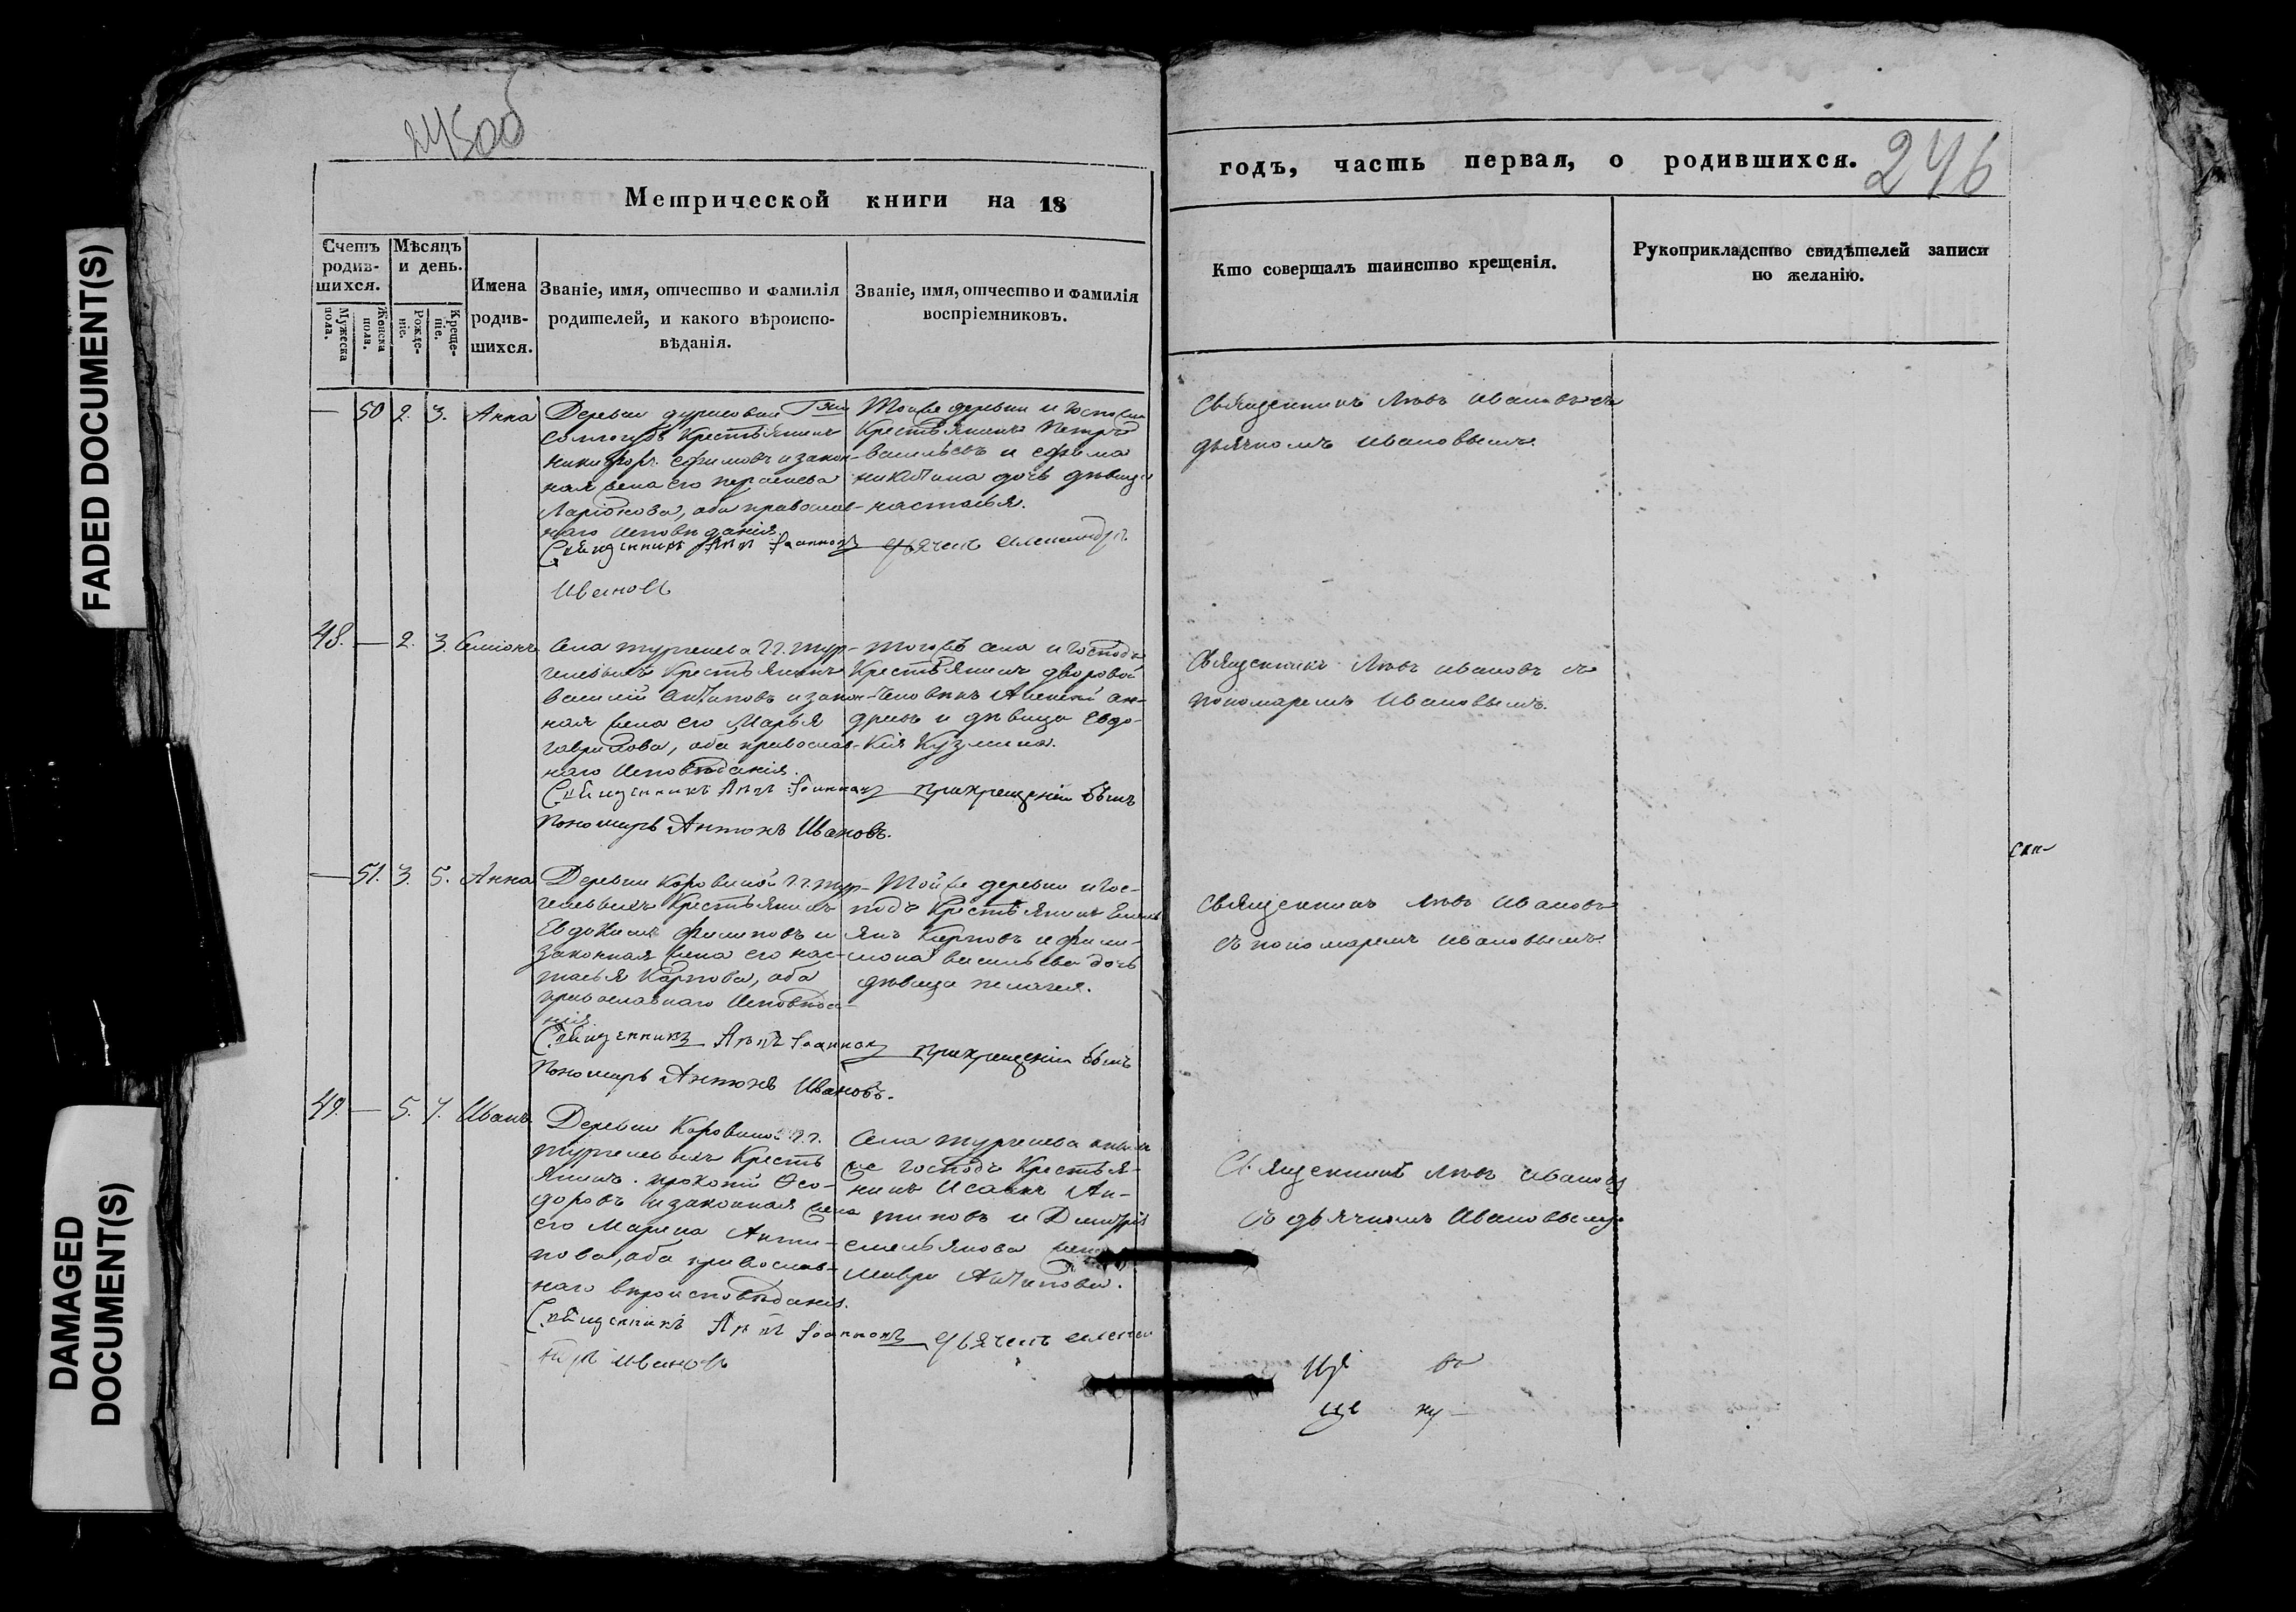 FADED DOCUMENT(S)
DAMAGED
DOCUMENT(S)
245об
Метрической книги на 18
Счетъ родив-шихся.
Мужеска пола.
Женска пола.
Мѣсяцъ и день.
Рожде-ніе.
Креще-ніе.
Имена родив-шихся.
Званіе, имя, отчество и фамилія
родителей, и какого вѣроиспо-
вѣданія.
Званіе, имя, отчество и фамилія
воспріемниковъ.
— 50 2. 3. Анна
Деревни
Крестьянинъ
Никифоръ Ефимовъ и закон-
ная жена его
Ларіонова, оба православ-
наго исповѣданія.
Священникъ Левъ Іоанновъ дьячекъ Александръ
Ивановъ
Тойже деревни и Господина
Крестьянинъ Петръ
Васильевъ и Ефима
Никитина дочь дѣвица
Настасья.
48. — 2. 3. Семіонъ
Села Тургенева Г.г. Тур-
геневыхъ Крестьянинъ
Василій Антиповъ и закон-
ная жена его Марья
Гаврилова, оба православ-
наго исповѣданія.
Священникъ Левъ Іоанновъ при крещеніи былъ
Пономарь Антонъ Ивановъ.
Тогожъ села и Господъ
Крестьянинъ дворовой
человѣкъ Алексѣй Ан-
дреевъ и дѣвица Евдо-
кія Кузмина.
— 51. 3. 5. Анна
Деревни Коровиной Г.г. Тур-
геневыхъ Крестьянинъ
Евдокимъ Филиповъ и
законная жена его Нас-
тасья Карпова, оба
православнаго исповѣда-
нія
Священникъ Левъ Іоанновъ при крещеніи былъ
Пономарь Антонъ Ивановъ.
Тойже деревни и Гос-
подъ Крестьянинъ Емель-
янъ Карповъ и Фили-
мона Васильева дочь
дѣвица Пелагея.
49. — 5. 7. Иванъ.
Деревни Коровиной Г.г.
Тургеневыхъ Кресть
янинъ Прокопій Ѳео-
доровъ и законная жена
его Марина Анти-
пова, оба православ-
наго вѣроисповѣданія.
Священникъ Левъ Іоанновъ дьячекъ Алексан
дръ Ивановъ
Села Тургенева
же Господъ Крестья-
нинъ Исаакъ Ан-
типовъ и Дмитрія
Емельянова жена
Мавра Антипова.
годъ, часть первая, о родившихся.
246
Кто совершалъ таинство крещенія.
Рукоприкладство свидѣтелей записи
по желанію.
Священникъ Левъ Ивановъ съ
дьячкомъ Ивановымъ.
Священникъ Левъ Ивановъ съ
пономаремъ Ивановымъ.
Священникъ Левъ Ивановъ
съ пономаремъ Ивановымъ.
Священникъ Левъ Ивановъ
съ дьячкомъ Ивановымъ.